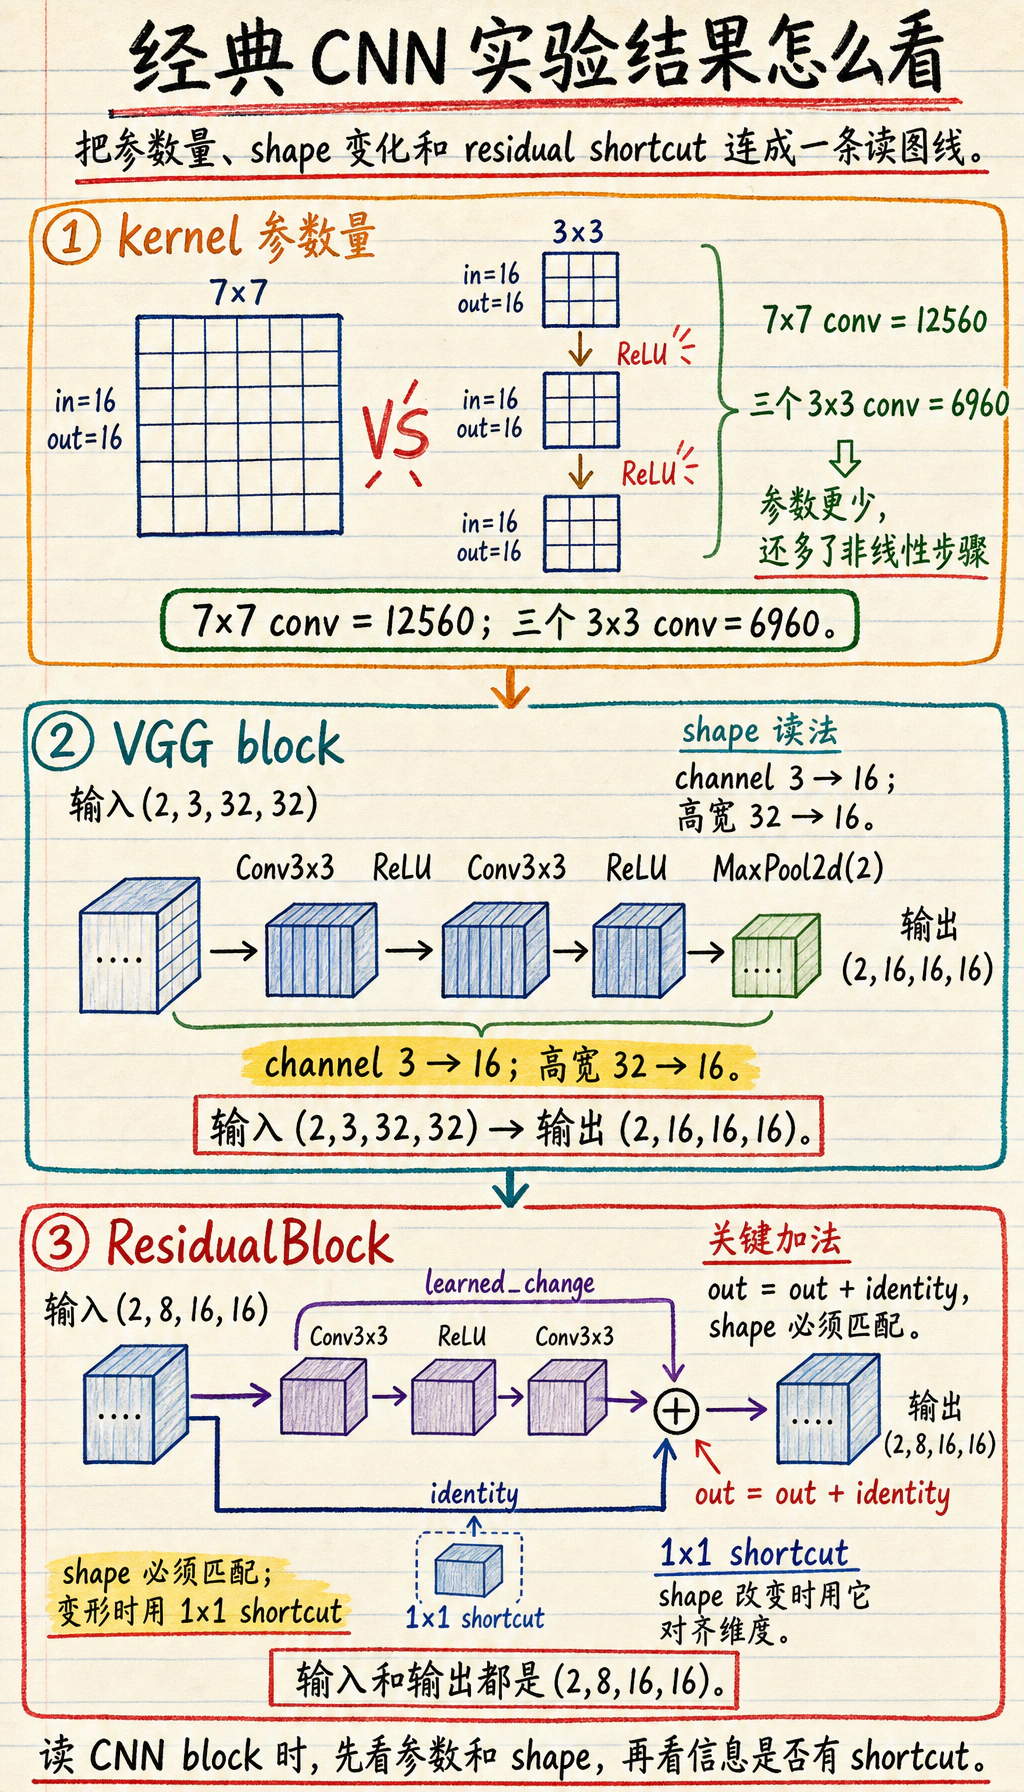 经典 CNN 实验结果怎么看
把参数量、shape 变化和 residual shortcut 连成一条读图线。
① kernel 参数量
7×7
in=16
out=16
VS
3×3
in=16
out=16
ReLU
in=16
out=16
ReLU
in=16
out=16
7×7 conv = 12560
三个 3x3 conv = 6960
参数更少，
还多了非线性步骤
7×7 conv = 12560；三个 3x3 conv = 6960。
② VGG block
输入 (2, 3, 32, 32)
shape 读法
channel 3 → 16；
高宽 32 → 16。
Conv3x3 ReLU Conv3x3 ReLU MaxPool2d(2)
....
....
输出
(2,16,16,16)
channel 3 → 16；高宽 32 → 16。
输入 (2,3,32,32) → 输出 (2,16,16,16)。
③ ResidualBlock
输入 (2, 8, 16, 16)
关键加法
out = out + identity,
shape 必须匹配。
learned_change
Conv3x3 ReLU Conv3x3
....
+
....
输出
(2,8,16,16)
identity
out = out + identity
1x1 shortcut
shape 必须匹配；
变形时用 1x1 shortcut
1x1 shortcut
shape 改变时用它
对齐维度。
输入和输出都是 (2,8,16,16)。
读 CNN block 时, 先看参数和 shape, 再看信息是否有 shortcut。